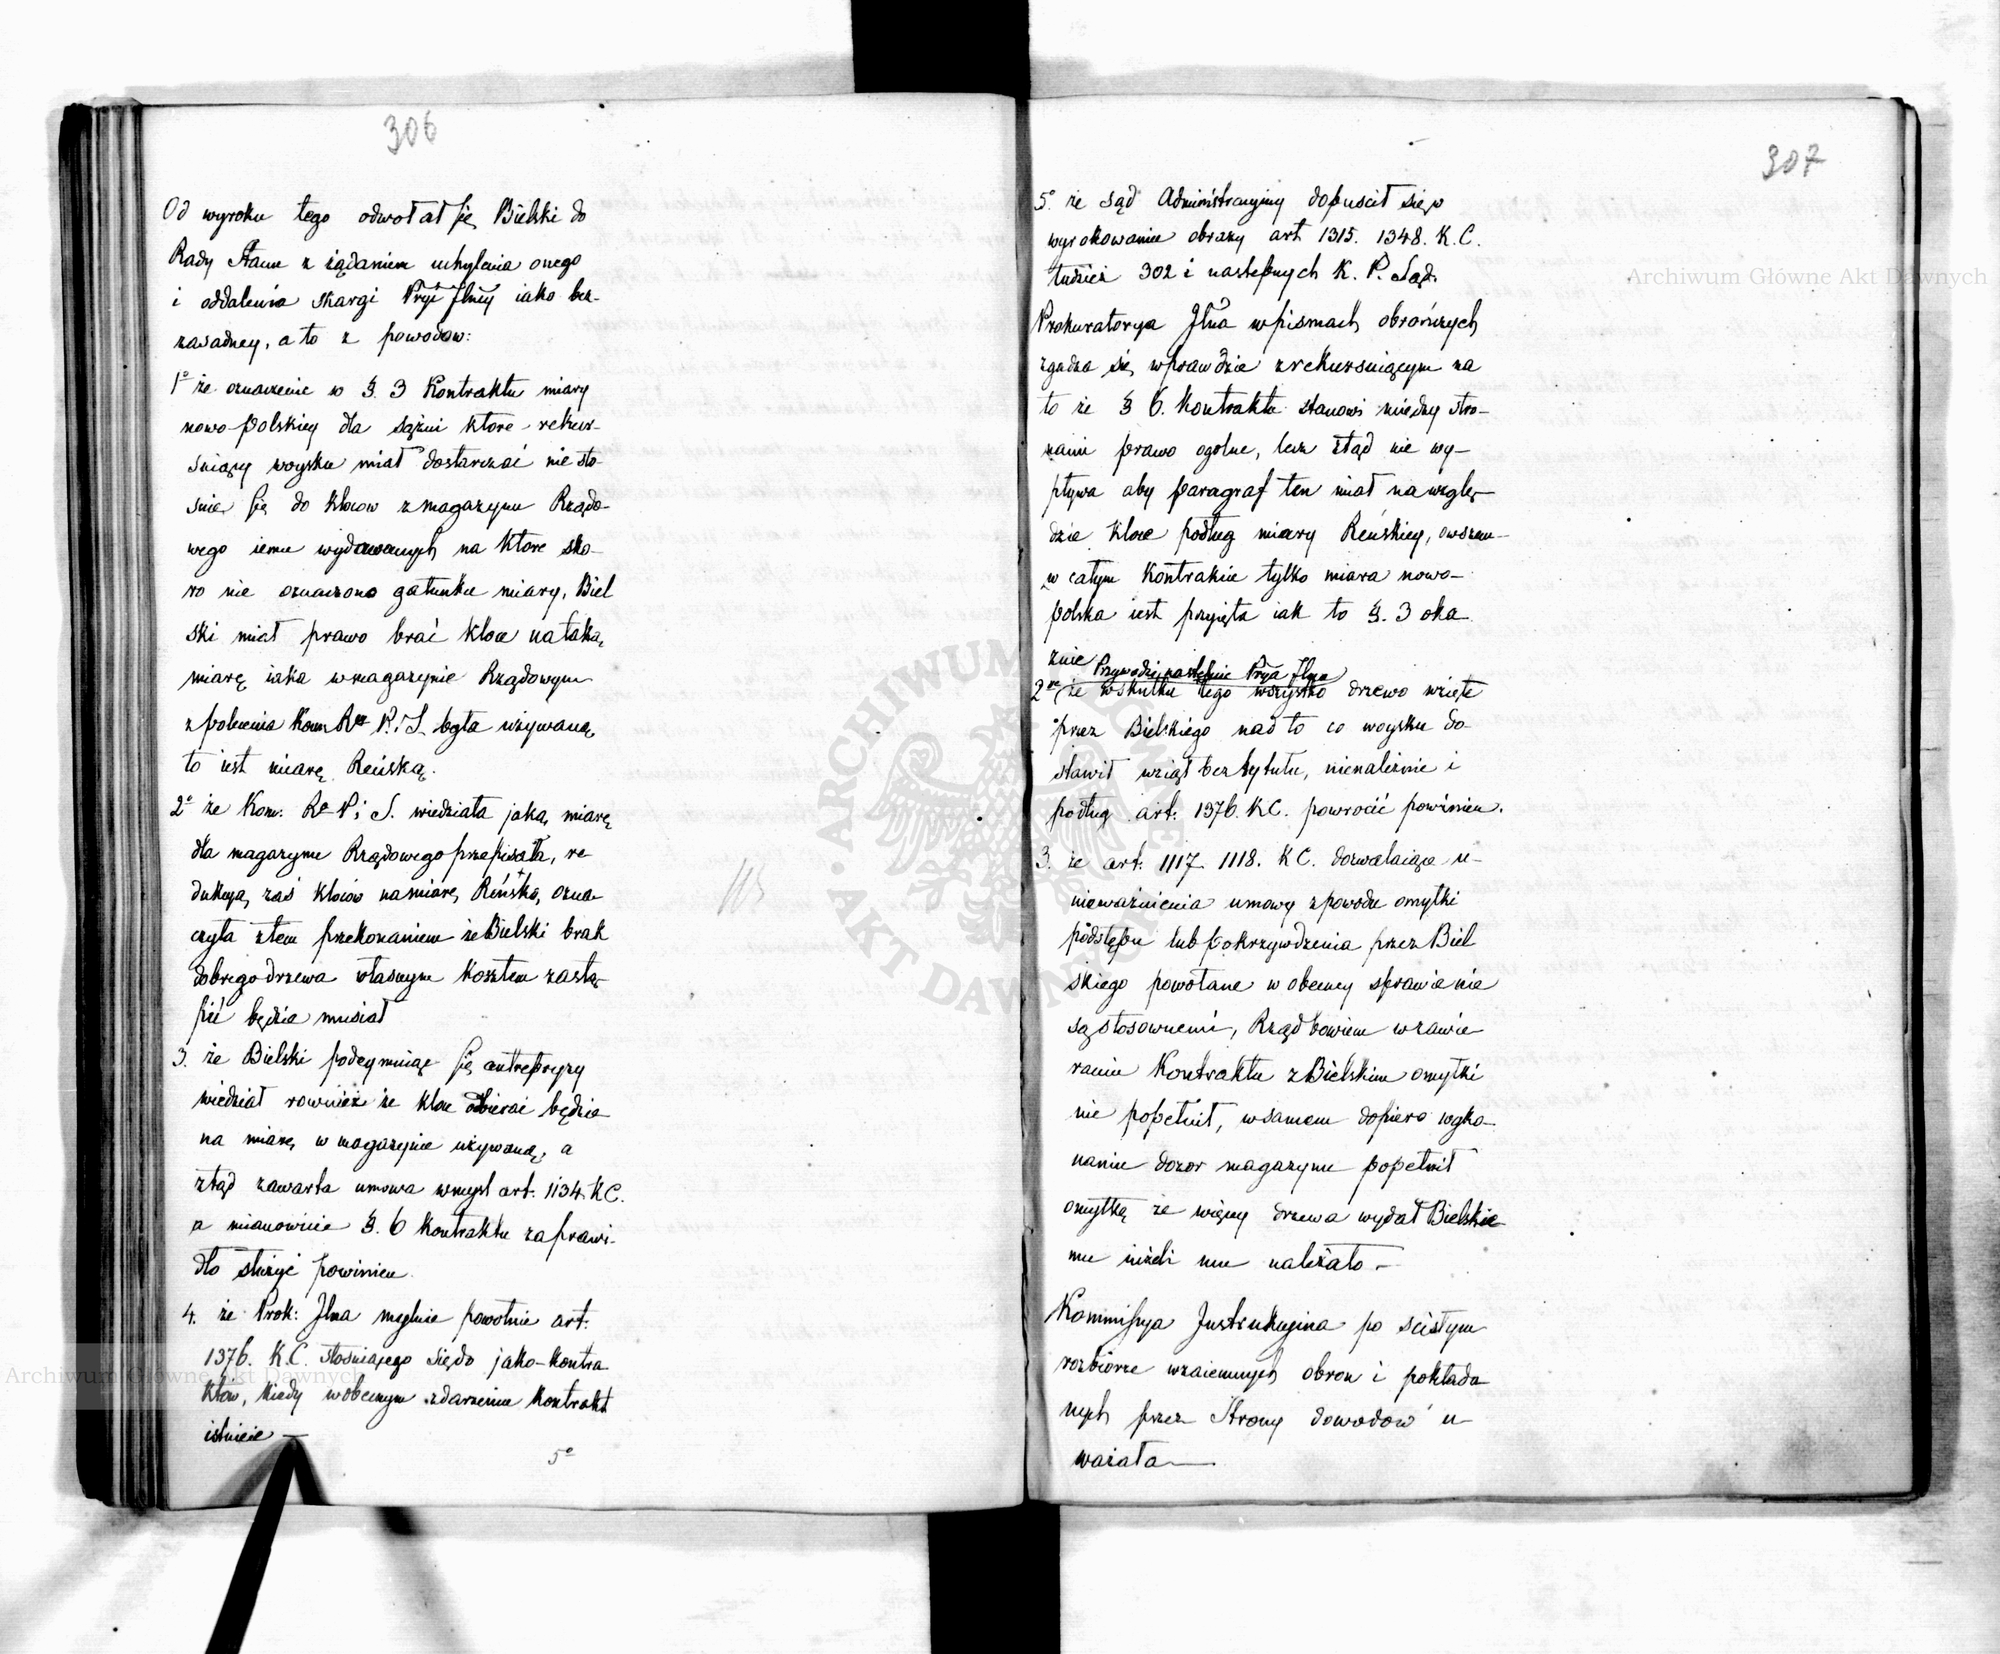 306
Od wyroku tego odwołał się Bielski do
Rady Stanu z żądaniem uchylenia onego
i oddalenia skargi Pryi Jlney iako bez-
zasadney, a to z powodow:
1° że oznaczenie w §. 3 Kontraktu miary
nowo-polskiey dla sążni ktore rekur-
suiący woysku miał dostarczać nie sto-
suie się do klocow z magazynu Rządo-
wego iemu wydawanych na ktore sko-
ro nie oznaczono gatunku miary, Biel
ski miał prawo brać kloce na taką
miarę iaka w magazynie Rządowym
z polecenia Kom Rej P. i S. była używaną,
to iest miarę Reńską.
2° że Kom: R P i S. wiedziała jaką miarę
dla magazynu Rządowego przepisała, re-
dukcyą zaś klocow na miarę Reńską, ozna-
czyła z tem przekonaniem że Bielski brak
dobrego drzewa własnym kosztem zastą-
pić będzie musiał
3. że Bielski podeymuiąc się antrepryzy
wiedział rownież że kloce odbierać będzie
na miarę w magazynie używaną, a
ztąd zawarta umowa w myśl art. 1134. K C.
a mianowicie §. 6 Kontraktu za prawi-
dło służyć powinien.
4. że Prok: Jlna mylnie powołuie art.
1376. K.C. stosuiącego się do jako-kontra
ktow, kiedy w obecnym zdarzeniu kontrakt
istnieie —
5°
113
307
5° że Sąd Administracyiny dopuścił się w
wyrokowaniu obrazy art 1315. 1348. K. C.
tudzież 302 i następnych K. P. Sąd.
Prokuratorya Jlna w pismach obrończych
zgadza się wprawdzie z rekursuiącym na
to że § 6. Kontraktu stanowi między stro-
nami prawo ogolne, lecz ztąd nie wy-
pływa aby paragraf ten miał na wzglę-
dzie kloce podług miary Reńskiey, owszem
w całym Kontrakcie tylko miara nowo-
polska iest przyięta iak to §. 3 oka
zuie
Przywodzi następnie Prya Jlna
2re że wskutku tego wszystko drzewo wzięte
przez Bielskiego nad to co woysku do
stawił wziął bez tytułu, nienależnie i
podług art. 1376. K.C. powrocić powinien.
3. że art. 1117 1118. K C. dozwalaiące u-
nieważnienia umowy z powodu omyłki
podstępu lub pokrzywdzenia przez Biel
skiego powołane w obecney sprawie nie
są stosownemi, Rząd bowiem w zawie
raniu Kontraktu z Bielskim omyłki
nie popełnił, w samem dopiero wyko-
naniu dozor magazynu popełnił
omyłkę że więcey drzewa wydał Bielskie
mu niżeli mu należało —
Kommissya Instrukcyina po ścisłym
rozbiorze wzaiemnych obron i pokłada
nych przez Strony dowodow u-
ważała —
Archiwum Główne Akt Dawnych
Archiwum Główne Akt Dawnych
ARCHIWUM GŁÓWNE AKT DAWNYCH